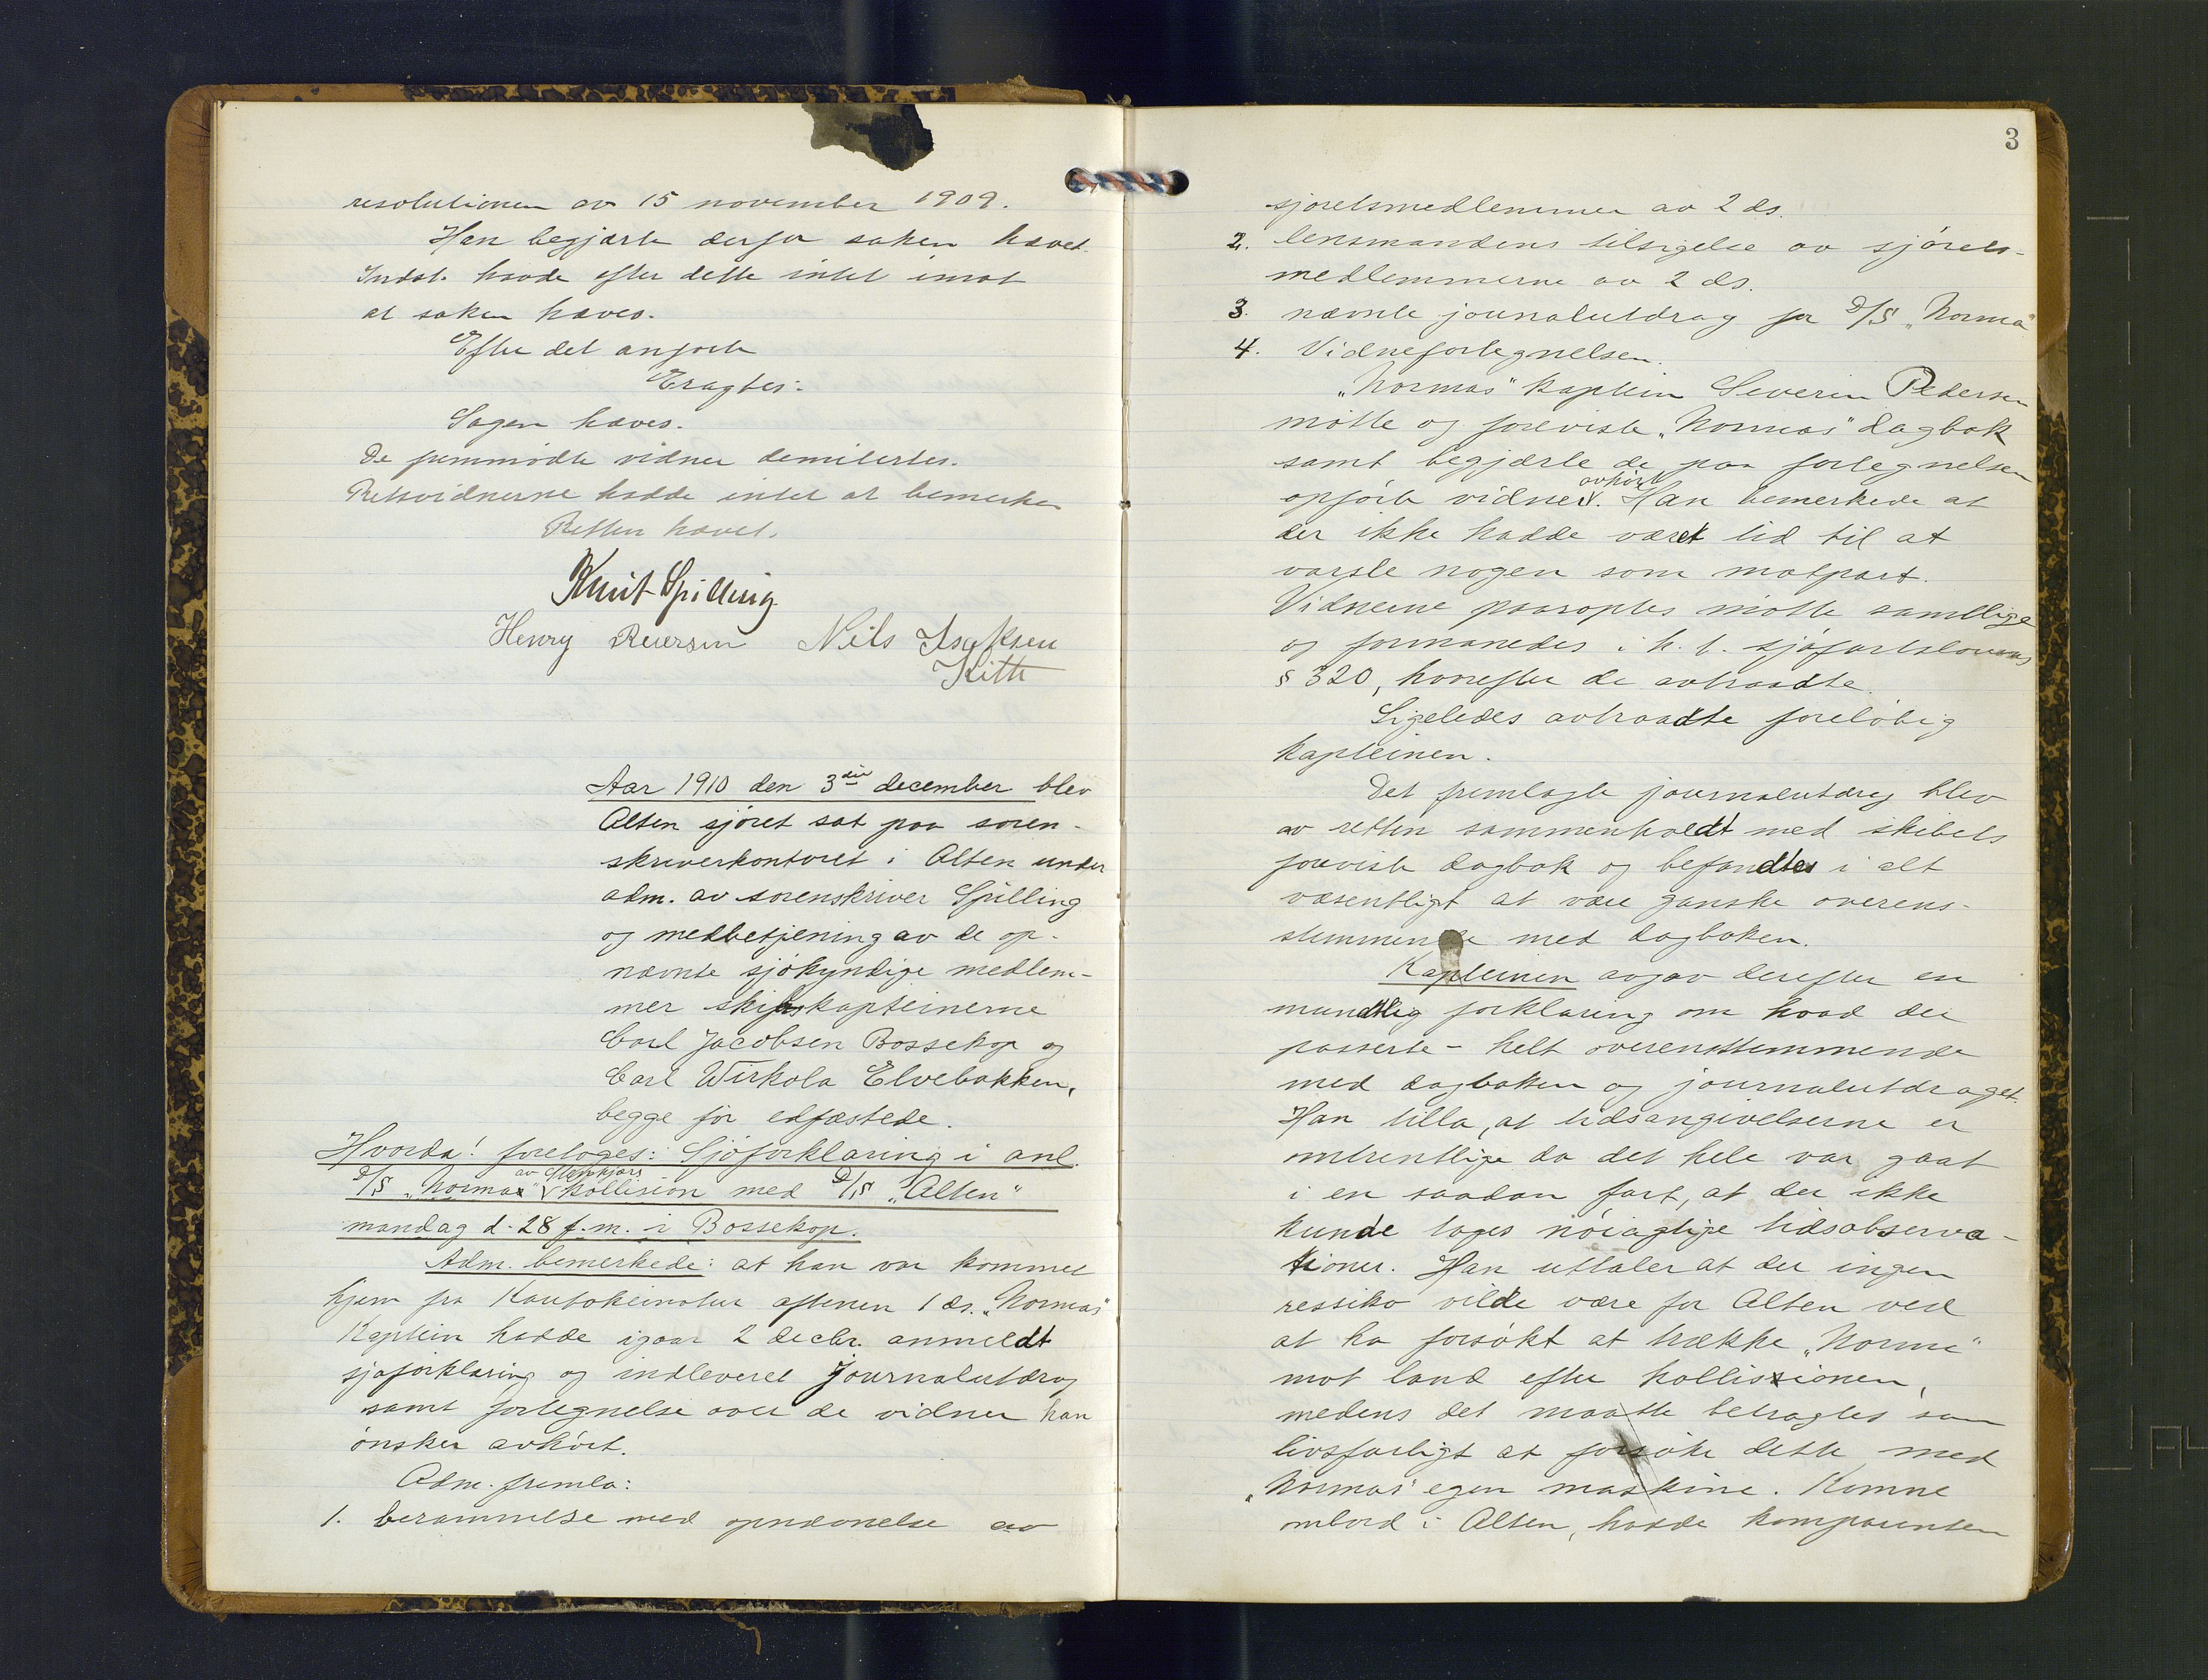 resolutionen av 15 november 1909.
Han begjærte derfor saken hævet.
Indst. havde efter dette intet imot
at saken hæves.
Efter det anførte
Eragtes:
Sagen hæves.
De fremmødte vidner demitertes.
Retsvidnerne hadde intet at bemerke
Retten hævet.
Knut Spilling
Henry Reiersen Nils Isaksen
Kitti
Aar 1910 den 3die december blev
Alten sjøret sat paa soren-
skriverkontoret i Alten under
adm. av sorenskriver Spilling
og medbetjening av de op-
nævnte sjøkyndige medlem-
mer skibskapteinerne
Carl Jacobsen Bossekop og
Carl Wirkola Elvebakken,
begge før edfæstede.
Hvorda! foretoges: Sjøforklaring i anl.
av Stenkjærs
D/S „Norma" kollision med D/S „Alten"
mandag d. 28 f.m. i Bossekop.
Adm. bemerkede: at han var kommet
hjem fra Kautokeinotur aftenen 1 ds. „Normas"
Kaptein hadde igaar 2 decbr. anmeldt
sjøforklaring og indleveret journalutdrag
samt fortegnelse over de vidner han
ønsker avhørt.
Adm. fremla:
1. berammelse med opnævnelse av
3
sjøretsmedlemmer av 2 ds.
2. lensmandens tilsigelse av sjørets-
medlemmerne av 2 ds.
3. nævnte journalutdrag for D/S „Norma"
4. Vidnefortegnelsen.
„Normas" kaptein Severin Pedersen
møtte og foreviste „Normas" dagbok
samt begjærte de paa fortegnelsen
avhørt
opførte vidner. Han bemerkede at
der ikke hadde været tid til at
varsle nogen som motpart.
Vidnerne paaroptes møtte samtlige
og formanedes i h. t. sjøfartslovens
§ 320, hvorefter de avtraadte.
Ligeledes avtraadte foreløbig
kapteinen.
Det fremlagte journalutdrag blev
av retten sammenholdt med skibets
foreviste dagbok og befandtes i alt
væsentligt at være ganske overens-
stemmende med dagboken.
Kapteinen avgav derefter en
mundtlig forklaring om hvad der
passerte - helt overensstemmende
med dagboken og journalutdraget.
Han tilla, at tidsangivelserne er
omtrentlige da det hele var gaat
i en saadan fart, at der ikke
kunde tages nøiagtige tidsobserva-
tioner. Han uttaler at der ingen
ressiko vilde være for Alten ved
at ha forsøkt at trække „Norma"
mot land efter kollisionen,
medens det maatte betragtes som
livsfarligt at forsøke dette med
„Normas" egen maskine. Komne
ombord i Alten, hadde komparenten